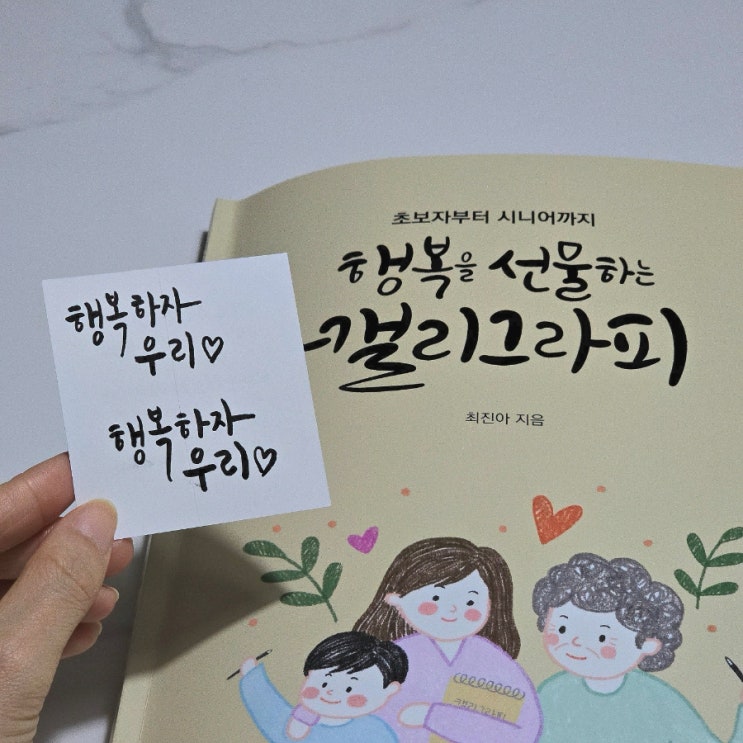 초보자부터 시니어까지
행복을 선물하는
캘리그라피
최진아 지음
행복하자
우리♡
행복하자
우리♡
캘리그라피